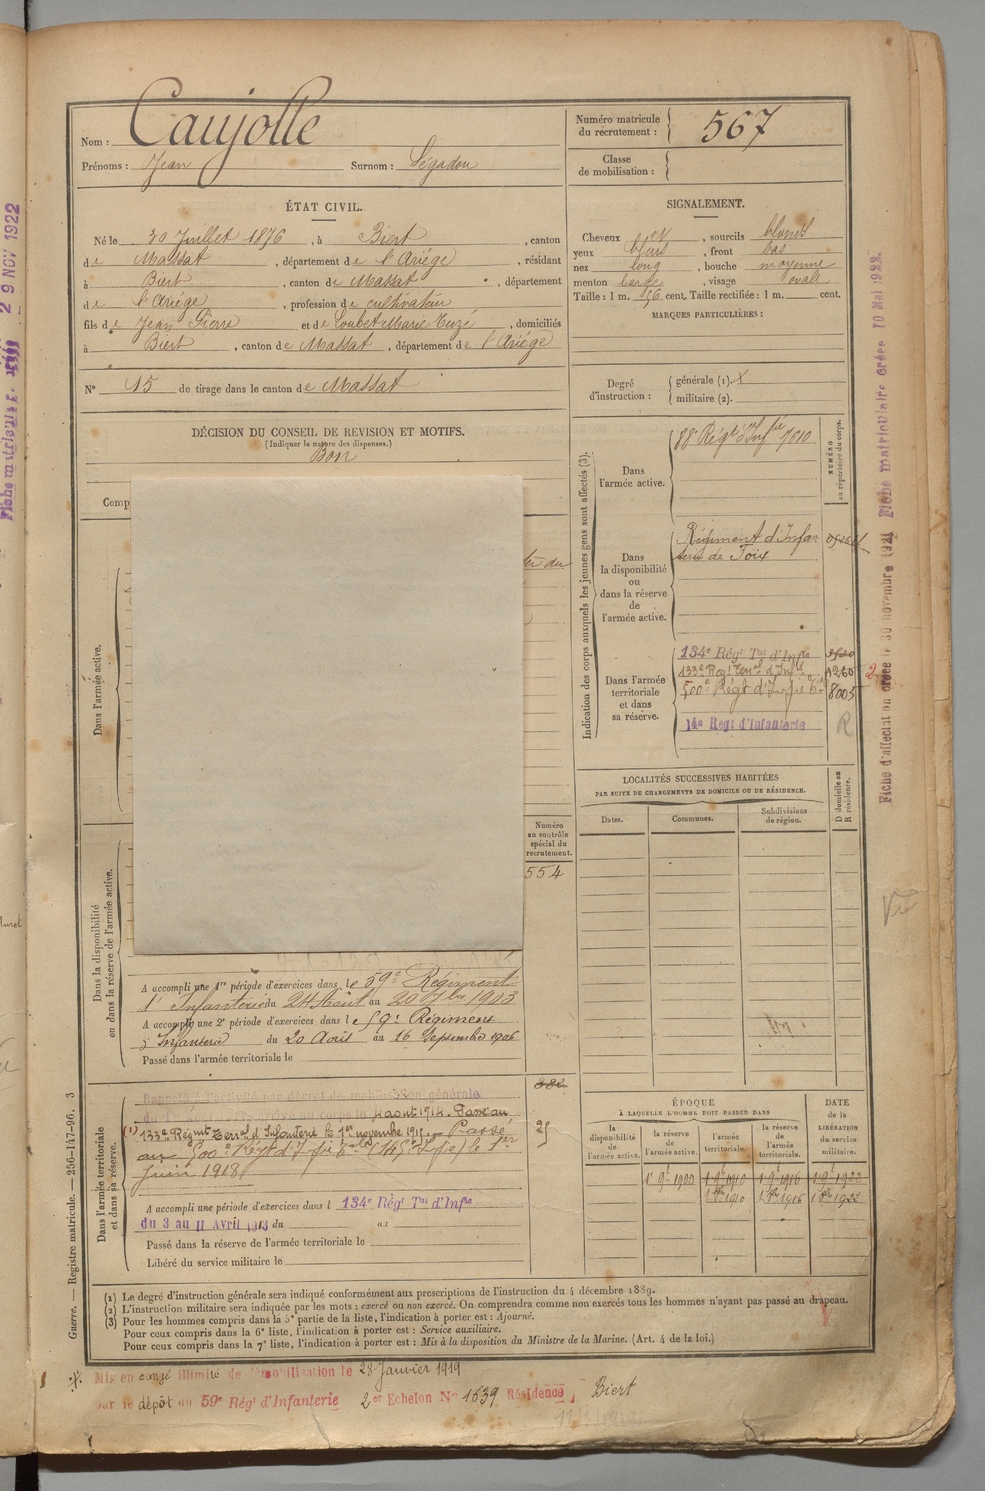 Nom : Caujolle
Prénoms : Jean Surnom : Ségadou
Numéro matricule du recrutement : 567
Classe de mobilisation :
ÉTAT CIVIL.
Né le 30 Juillet 1876, à Biert, canton
de Massat, département de l'Ariège, résidant
à Biert, canton de Massat, département
de l'Ariège, profession de cultivateur
fils de Jean Pierre et de Loubet Marie, domiciliés
à Biert, canton de Massat, département de l'Ariège
N° 15 de tirage dans le canton de Massat
SIGNALEMENT.
Cheveux et, sourcils blonds
yeux bleus, front bas
nez long, bouche moyenne
menton large, visage ovale
Taille : 1 m. 56 cent. Taille rectifiée : 1 m. cent.
MARQUES PARTICULIÈRES :
Degré d'instruction : générale (1).
militaire (2).
DÉCISION DU CONSEIL DE REVISION ET MOTIFS.
(Indiquer la nature des dispenses.)
Bon
Comp
Dans l'armée active.
Indication des corps auxquels les jeunes gens sont affectés (3).
NUMÉRO au répertoire du corps.
Dans l'armée active.
88e Régt d'Infie 7610
Dans la disponibilité ou dans la réserve de l'armée active.
Régiment d'Infan
terie de Foix
Dans l'armée territoriale et dans sa réserve.
134e Régt Tal d'Infie
133e Regt Terral d'Infie 1260
500e Régt d'Infie 8005
14e Regt d'Infanterie R
LOCALITÉS SUCCESSIVES HABITÉES
PAR SUITE DE CHANGEMENTS DE DOMICILE OU DE RÉSIDENCE.
D domicile ou R résidence.
Dates. Communes. Subdivisions de région.
Numéro au contrôle spécial du recrutement.
554
Dans la disponibilité ou dans la réserve de l'armée active.
A accompli une 1re période d'exercices dans le 59e Régiment
d'Infanterie du 24 Août au 20 7bre 1903
A accompli une 2e période d'exercices dans le 59e Régiment
d'Infanterie du 20 Août au 16 Septembre 1906
Passé dans l'armée territoriale le
Dans l'armée territoriale et dans sa réserve.
Rappelé à l'activité par décret de mobilisation générale
du 1er août 1914. Arrivé au corps le 4 août 1914. Passé au
(1) 133e Régmt Terral d'Infanterie le 1er novembre 1915. Passé
au 500e Régt d'Infie le 1er
Juin 1918
A accompli une période d'exercices dans l 134e Régt Tal d'Infie
du 3 au 11 Avril 1913 du au
Passé dans la réserve de l'armée territoriale le
Libéré du service militaire le
382
25
ÉPOQUE
À LAQUELLE L'HOMME DOIT PASSER DANS
DATE de la LIBÉRATION du service militaire.
la disponibilité de l'armée active. la réserve de l'armée active. l'armée territoriale. la réserve de l'armée territoriale.
1er 9bre 1900 1er 9bre 1910 1er 9bre 1916 1er 9bre 1922
1er 8bre 1910 1er 8bre 1916 1er 8bre 1922
(1) Le degré d'instruction générale sera indiqué conformément aux prescriptions de l'instruction du 4 décembre 1889.
(2) L'instruction militaire sera indiquée par les mots : exercé ou non exercé. On comprendra comme non exercés tous les hommes n'ayant pas passé au drapeau.
(3) Pour les hommes compris dans la 5e partie de la liste, l'indication à porter est : Ajourné.
Pour ceux compris dans la 6e liste, l'indication à porter est : Service auxiliaire.
Pour ceux compris dans la 7e liste, l'indication à porter est : Mis à la disposition du Ministre de la Marine. (Art. 4 de la loi.)
Mis en congé illimité de démobilisation le 28 Janvier 1919
par le dépôt du 59e Régt d'Infanterie 2er Echelon N° 1539 Résidence Biert
Guerre. — Registre matricule. — 256-147-96. 3
Fiche d'affectation créée le 30 novembre 1921 Fiche matriculaire créée 10 Mai 1922.
29 NOV 1922
Vu